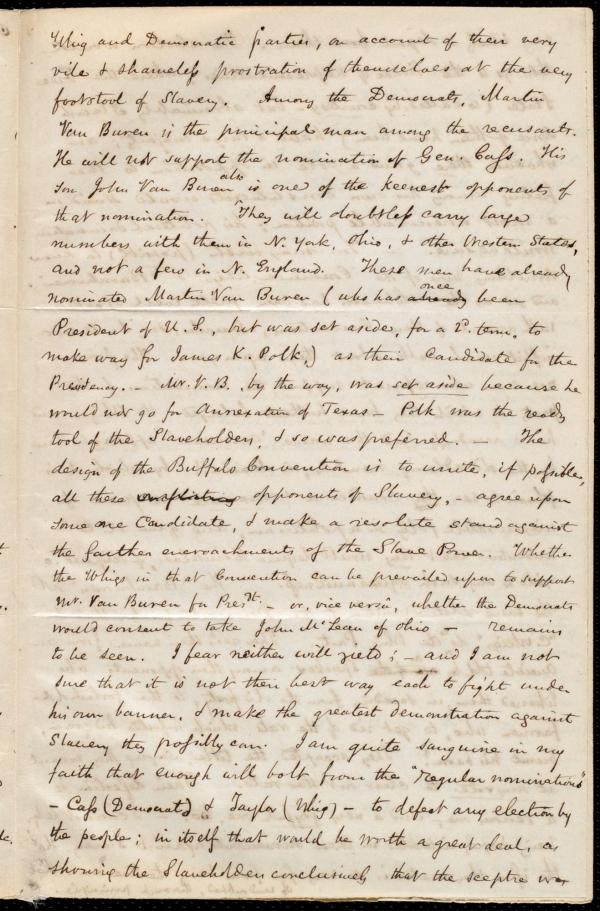 Whig and Democratic parties, on account of their very
vile & shameless prostration of themselves at the very
footstool of Slavery. Among the Democrats, Martin
Van Buren is the principal man among the recusants.
He will not support the nomination of Gen. Cass. His
son John Van Buren also is one of the keenest opponents of
that nomination. They will doubtless carry large
numbers with them in N. York, Ohio, & other Western States,
and not a few in N. England. These men have already
nominated Martin Van Buren (who has already once been
President of U. S., but was set aside, for a 2d. term, to
make way for James K. Polk,) as their Candidate for the
Presidency. - Mr. V. B., by the way, was set aside because he
would not go for Annexation of Texas - Polk was the ready
tool of the Slaveholders, & so was preferred. - The
design of the Buffalo Convention is to unite, if possible,
all these conflicting opponents of Slavery, - agree upon
some one Candidate, & make a resolute stand against
the farther encroachments of the Slave Power. Whether
the Whigs in that Convention can be prevailed upon to support
Mr. Van Buren for Prest. - or, vice versâ, whether the Democrats
would consent to take John McLean of Ohio - remains
to be seen. I fear neither will yield; - and I am not
sure that it is not their best way each to fight under
his own banner, & make the greatest demonstration against
Slavery they possibly can. I am quite sanguine in my
faith that enough will bolt from the "regular nominations"
- Cass (Democrat) & Taylor (Whig) - to defeat any election by
the people; in itself that would be worth a great deal, as
showing the Slaveholders conclusively that the sceptre was